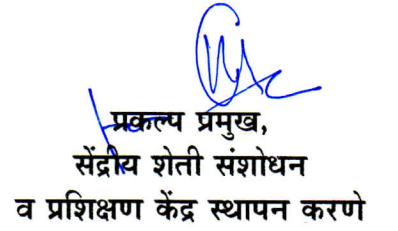 प्रकल्प प्रमुख,
सेंद्रीय शेती संशोधन
व प्रशिक्षण केंद्र स्थापन करणे